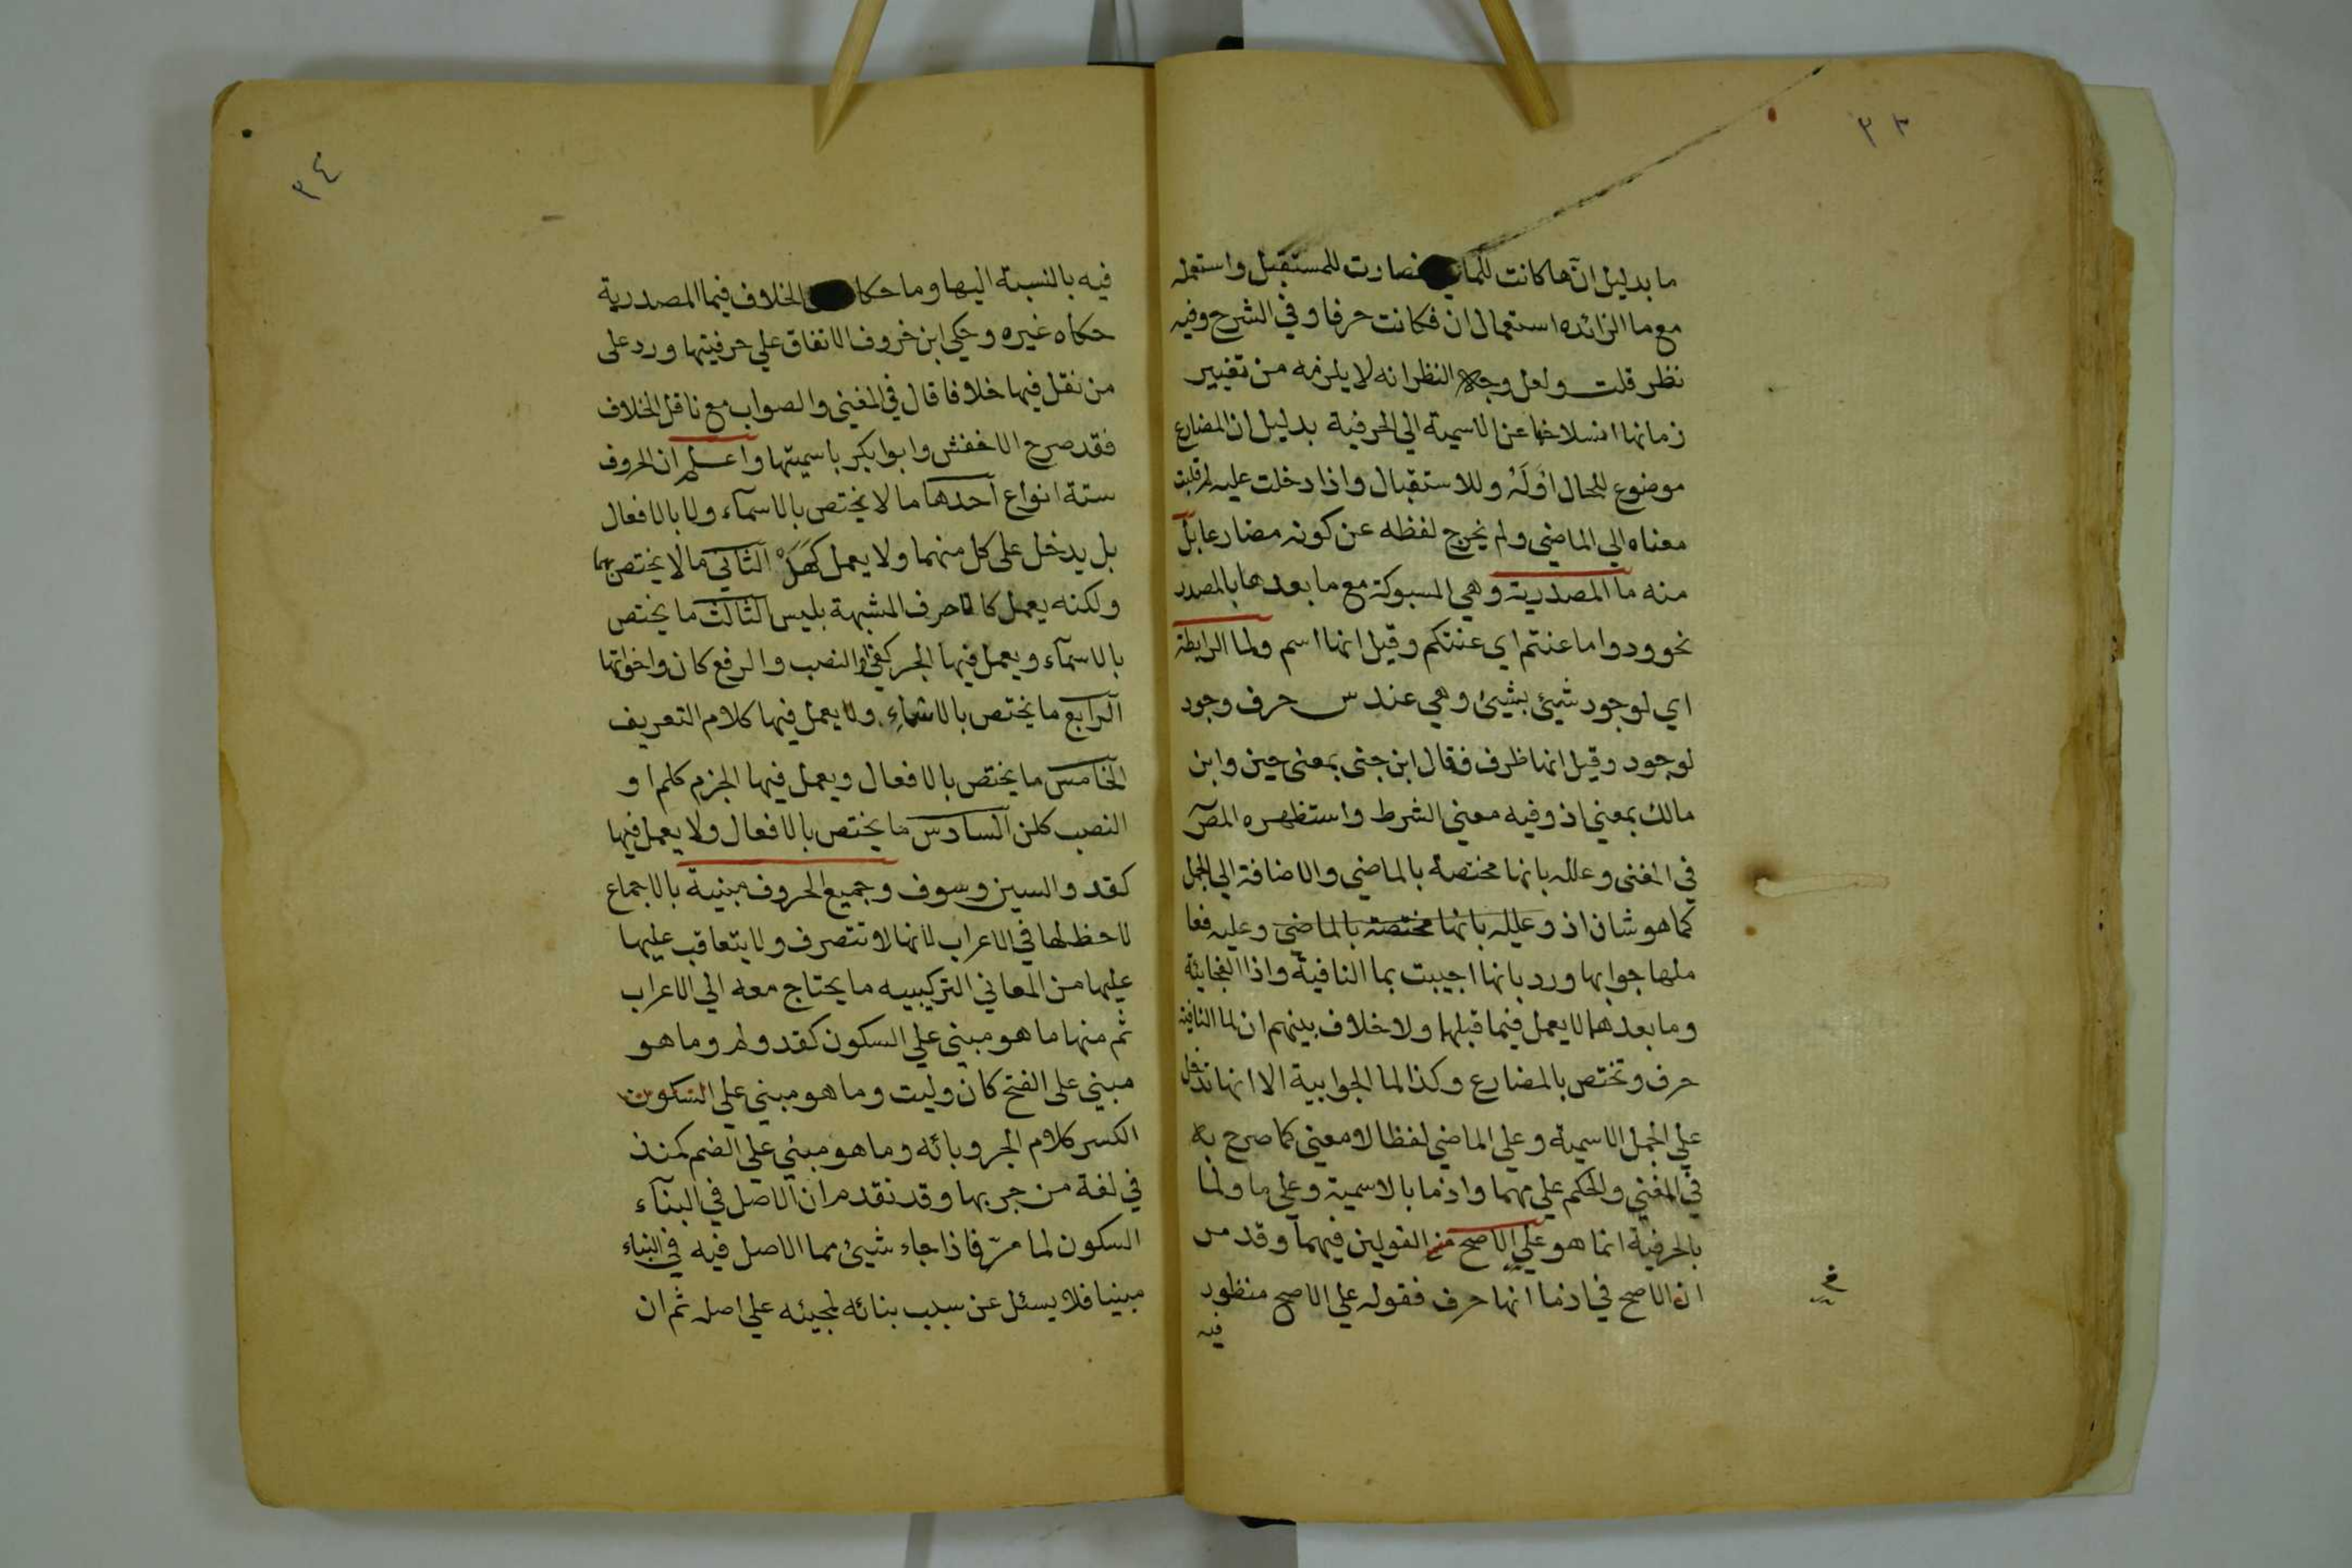 ٣٣
ما بدليل انّها كانت للماضي فصارت للمستقبل واستعمله
مع ما الزائده استعمال ان فكانت حرفا وفي الشرح وفيه
نظر قلت ولعل وجه النظر انه لا يلزمه من تغيير
زمانها انسلاخها عن الاسمية الي الحرفية بدليل ان المضارع
موضوع للحال اوله وللاستقبال واذا دخلت عليه لم قلبت
معناه الي الماضي ولم يخرج لفظه عن كونه مضارعا بل
منه ما المصدرية وهي المسبوكة مع ما بعدها بالمصدر
نحو ودوا ما عنتم اي عنتكم وقيل انها اسم ولما الرابطة
اي لوجود شيئ بشيئ وهي عند س حرف وجود
لوجود وقيل انها ظرف فقال ابن جني بمعني حين وابن
مالك بمعني اذ وفيه معني الشرط واستظهره المص
في المغني وعلله بانها مختصة بالماضي والاضافة الي الجمل
كما هو شان اذ وعلله بانها مختصة بالماضي وعليه فعا
ملها جوابها ورد بانها اجيبت بما النافية واذا الفجاية
وما بعدهما لا يعمل فيما قبلها ولا خلاف بينهم ان لما النافية
حرف وتختص بالمضارع وكذا لما الجوابية الا انها تدخل
علي الجمل الاسمية وعلي الماضي لفظا لا معني كما صرح به
في المغني والحكم علي مهما واذما بالاسمية وعلي ما ولما
بالحرفية انما هو علي الاصح من القولين فيهما وقد مر
ان الاصح في اذما انها حرف فقوله علي الاصح منظور
فيه
٣٤
فيه بالنسبة اليها وما حكا الخلاف فيما المصدرية
حكاه غيره وحكي ابن خروف الاتفاق علي حرفيتها ورد على
من نقل فيها خلافا قال في المغني والصواب مع ناقل الخلاف
فقد صرح الاخفش وابوا بكر باسميتها واعلم ان الحروف
ستة انواع احدها ما لا يختص بالاسمآء ولا بالافعال
بل يدخل على كل منهما ولا يعمل كهَلْ الثاني ما لا يختص بهما
ولكنه يعمل كالاحرف المشبهة بليس الثالث ما يختص
بالاسمآء ويعمل فيها الجر كفي او النصب والرفع كان واخواتها
الرابع ما يختص بالاسماء ولا يعمل فيها كلام التعريف
الخامس ما يختص بالافعال ويعمل فيها الجزم كلم او
النصب كلن السادس ما يختص بالافعال ولا يعمل فيها
كقد والسين وسوف وجميع الحروف مبنية بالاجماع
لا حظ لها في الاعراب لانها لا تتصرف ولا يتعاقب عليها
عليها من المعاني التركيبيه ما يحتاج معه الي الاعراب
ثم منها ما هو مبني علي السكون كقد ولم وما هو
مبني على الفتح كان وليت وما هو مبني علي السكون
الكسر كلام الجر وبائه وما هو مبني علي الضم كمنذ
في لغة من جر بها وقد تقدم ان الاصل في البنآء
السكون لما مرّ فاذا جاء شيئ مما الاصل فيه في البناء
مبنيا فلا يسئل عن سبب بنائه لمجيئه علي اصله ثم ان